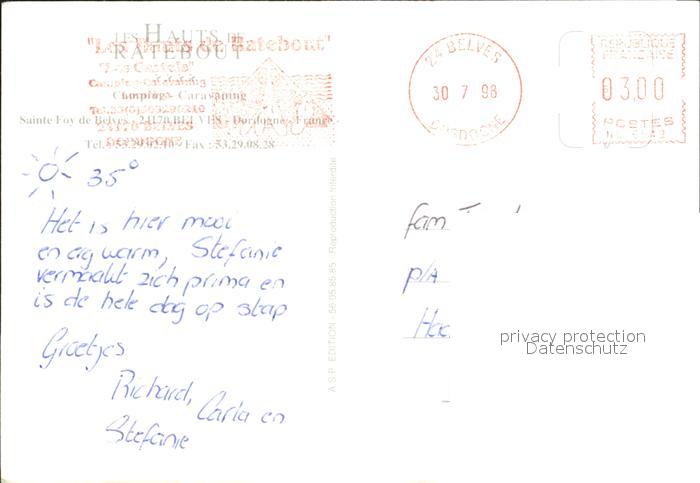 LES HAUTS DE
RATEBOUT
"Les Hauts de Ratebout"
Camping-Caravaning
Camping - Caravaning
Sainte Foy de Belvès - 24170 BELVES - Dordogne - France
24170 BELVES
DORDOGNE
Fax : 53.29.08.28
35°
Het is hier mooi
en erg warm, Stefanie
vermaakt zich prima en
is de hele dag op stap
Groetjes
Richard,
Carla en
Stefanie
A.S.P. EDITION - 56.05.85.85 - Reproduction Interdite
24 BELVES
30 7 98
DORDOGNE
REPUBLIQUE
FRANCAISE
03,00
POSTES
fam
p/a
privacy protection
Datenschutz